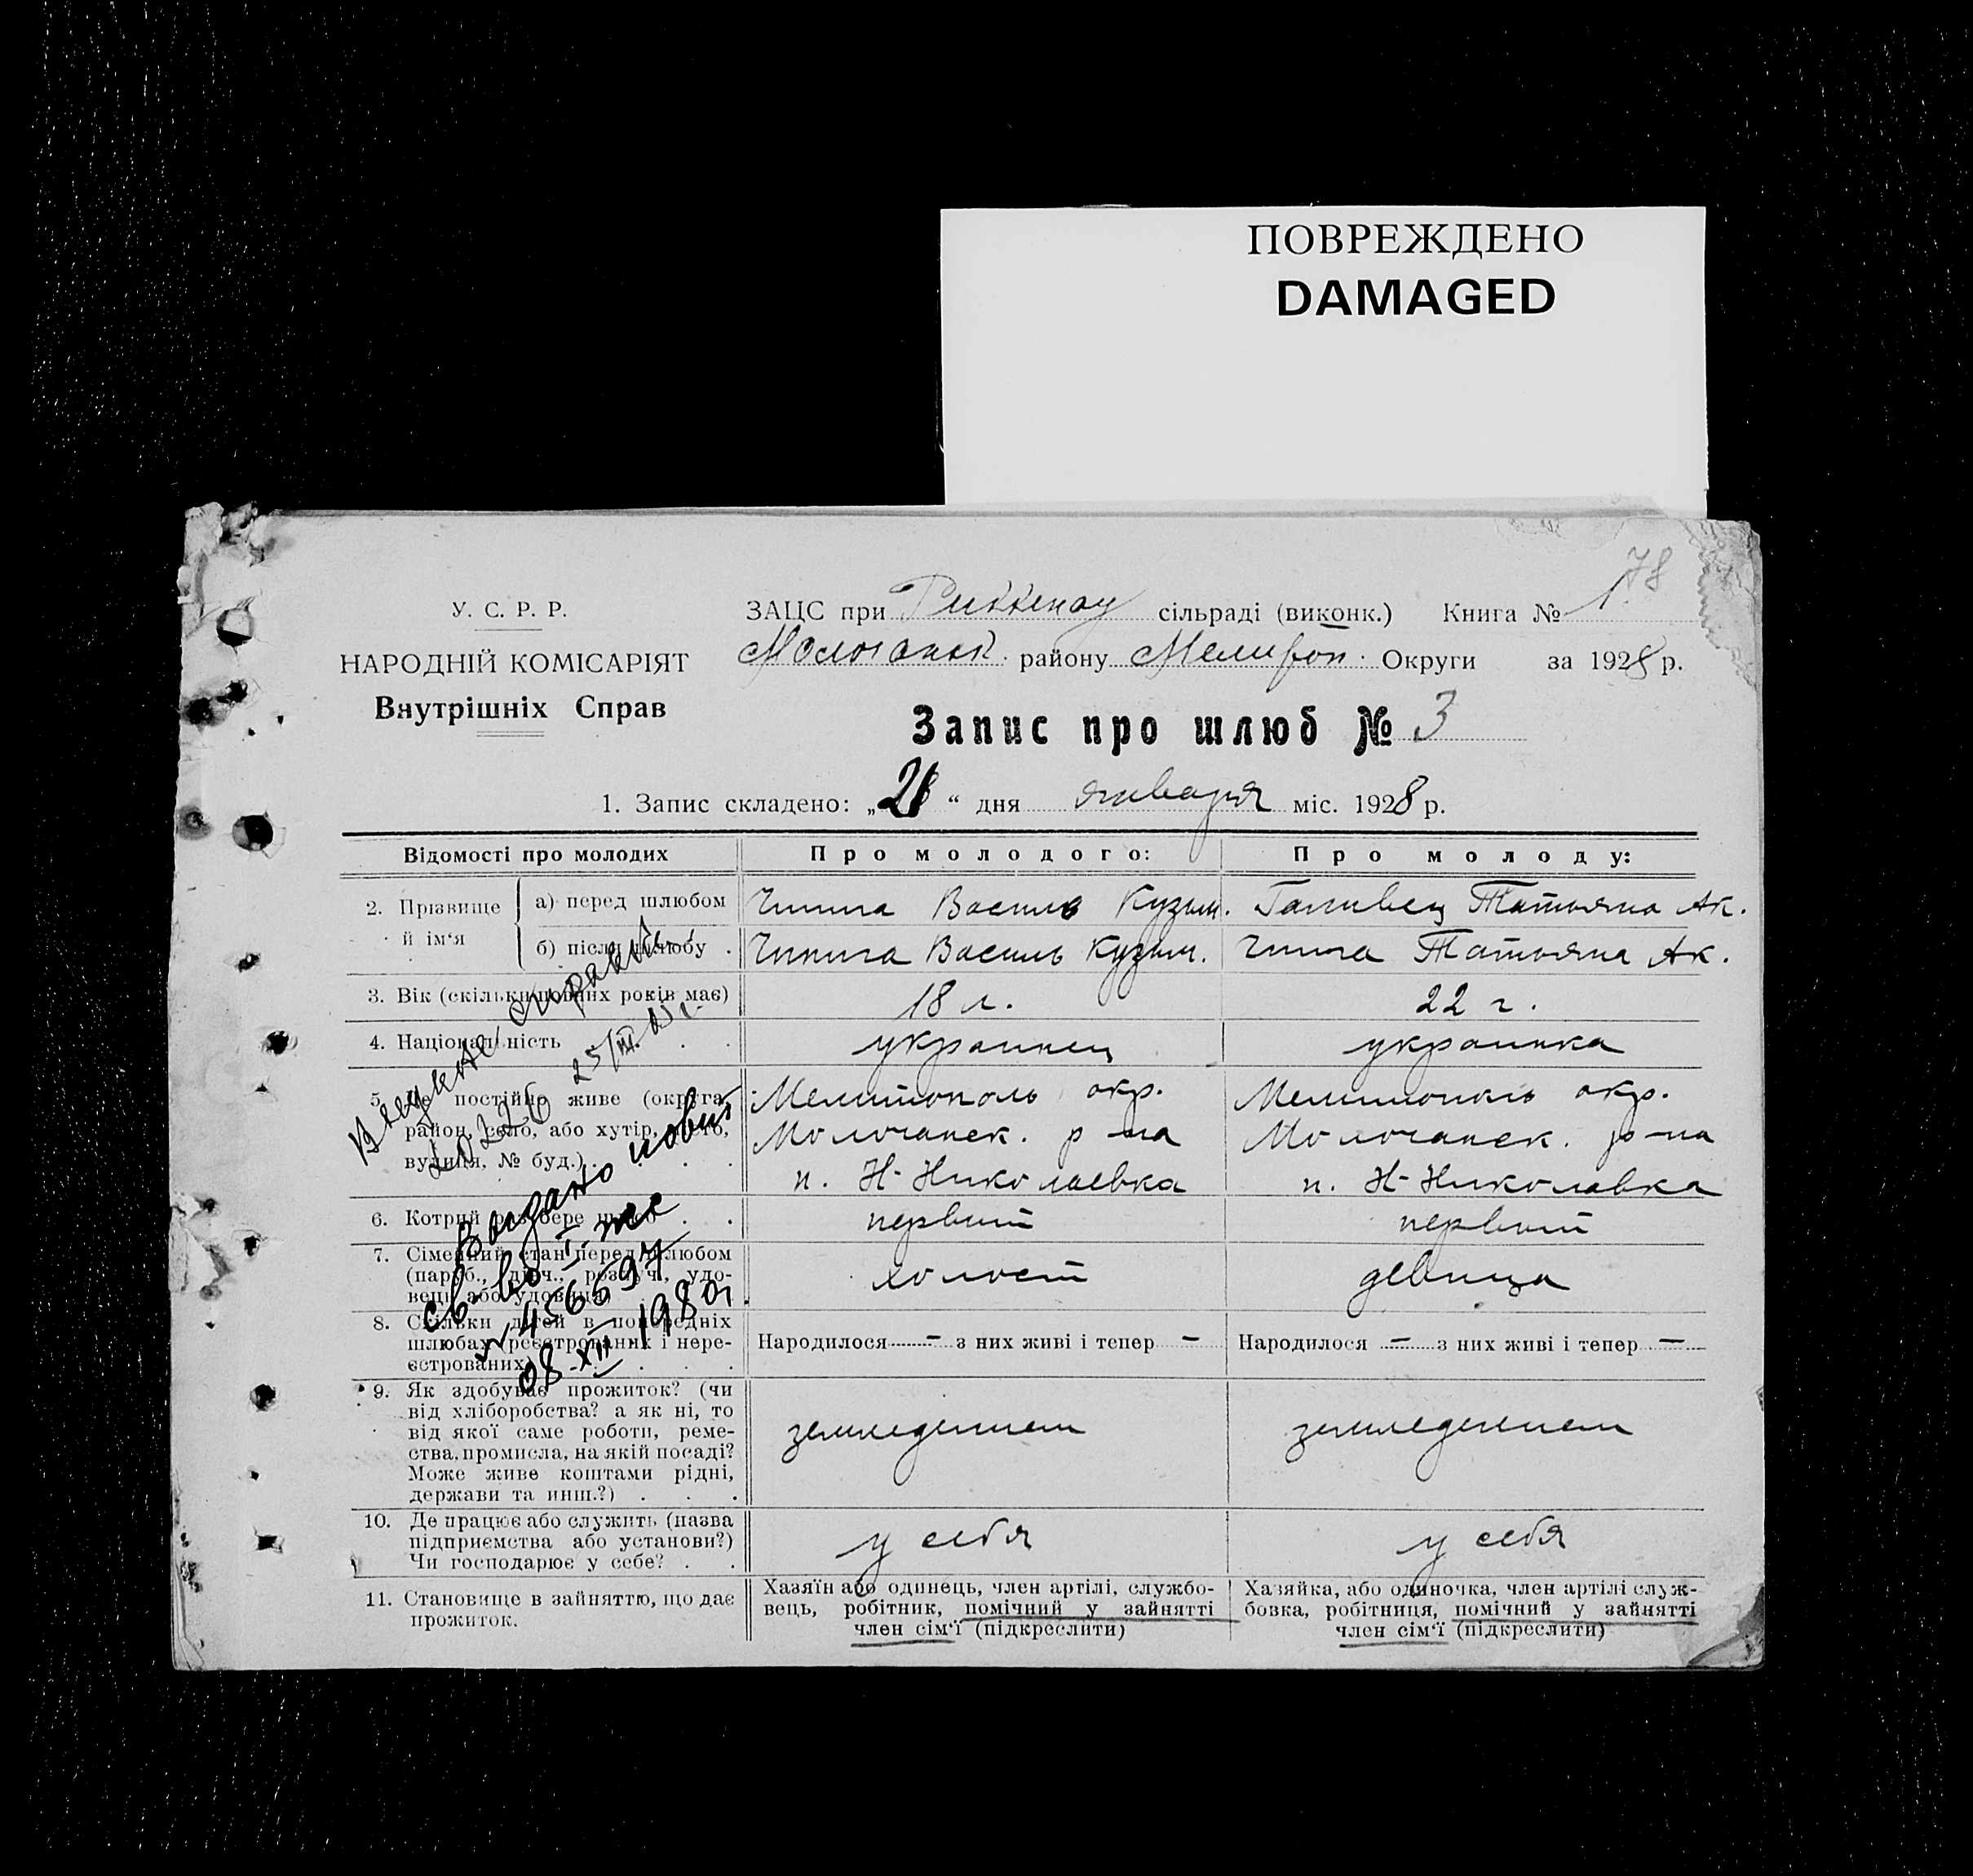 ПОВРЕЖДЕНО
DAMAGED
78
У. С. Р. Р.
НАРОДНІЙ КОМІСАРІЯТ
Внутрішніх Справ
ЗАЦС при Риккенау сільраді (виконк.) Книга № 1.
Молочанск. району Мелитоп. Округи за 1928 р.
Запис про шлюб № 3
1. Запис складено: „ “ дня января міс. 1928 р.
Відомості про молодих Про молодого: Про молоду:
2. Прізвище й ім‘я
а) перед шлюбом Василь Кузьм. Татьяна Ак.
б) після шлюбу . Василь Кузьм. Татьяна Ак.
3. Вік (скільки повних років має) 18 л. 22 г.
4. Національність . . украинец украинка
5. Де постійно живе (округа, Мелитополь окр. Мелитополь окр.
район, село, або хутір, місто, Молочанск. р-на Молочанск. р-на
вулиця, № буд.) . . . п. Н-Николаевка п. Н-Николавка
6. Котрий раз бере шлюб . . первый первый
7. Сімейний стан перед шлюбом
(паруб., дівч., розлуч., удо-
вець або удовиця) . холост девица
8. Скільки дітей в попередніх
шлюбах (реєстрованих і нере-
єстрованих) . . . .
Народилося — з них живі і тепер — Народилося — з них живі і тепер —
9. Як здобуває прожиток? (чи
від хліборобства? а як ні, то
від якої саме роботи, реме-
ства, промисла, на якій посаді?
Може живе коштами рідні,
держави та инш.?) . . .
земледелием земледелием
10. Де працює або служить (назва
підприємства або установи?)
Чи господарює у себе? . .
у себя у себя
11. Становище в зайняттю, що дає
прожиток.
Хазяїн або одинець, член артілі, службо-
вець, робітник, помічний у зайнятті
член сім‘ї (підкреслити)
Хазяйка, або одиночка, член артілі служ-
бовка, робітниця, помічний у зайнятті
член сім‘ї (підкреслити)
Выдано новий
св-во I-
№ 456597
08-XII 1980г.